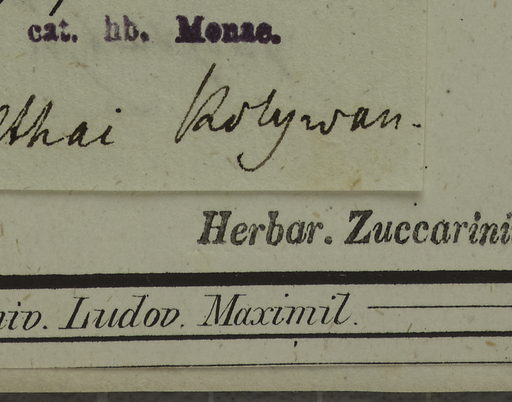 cat. hb. Monac.
lthai Kolywan.
Herbar. Zuccarini
niv. Ludov. Maximil.